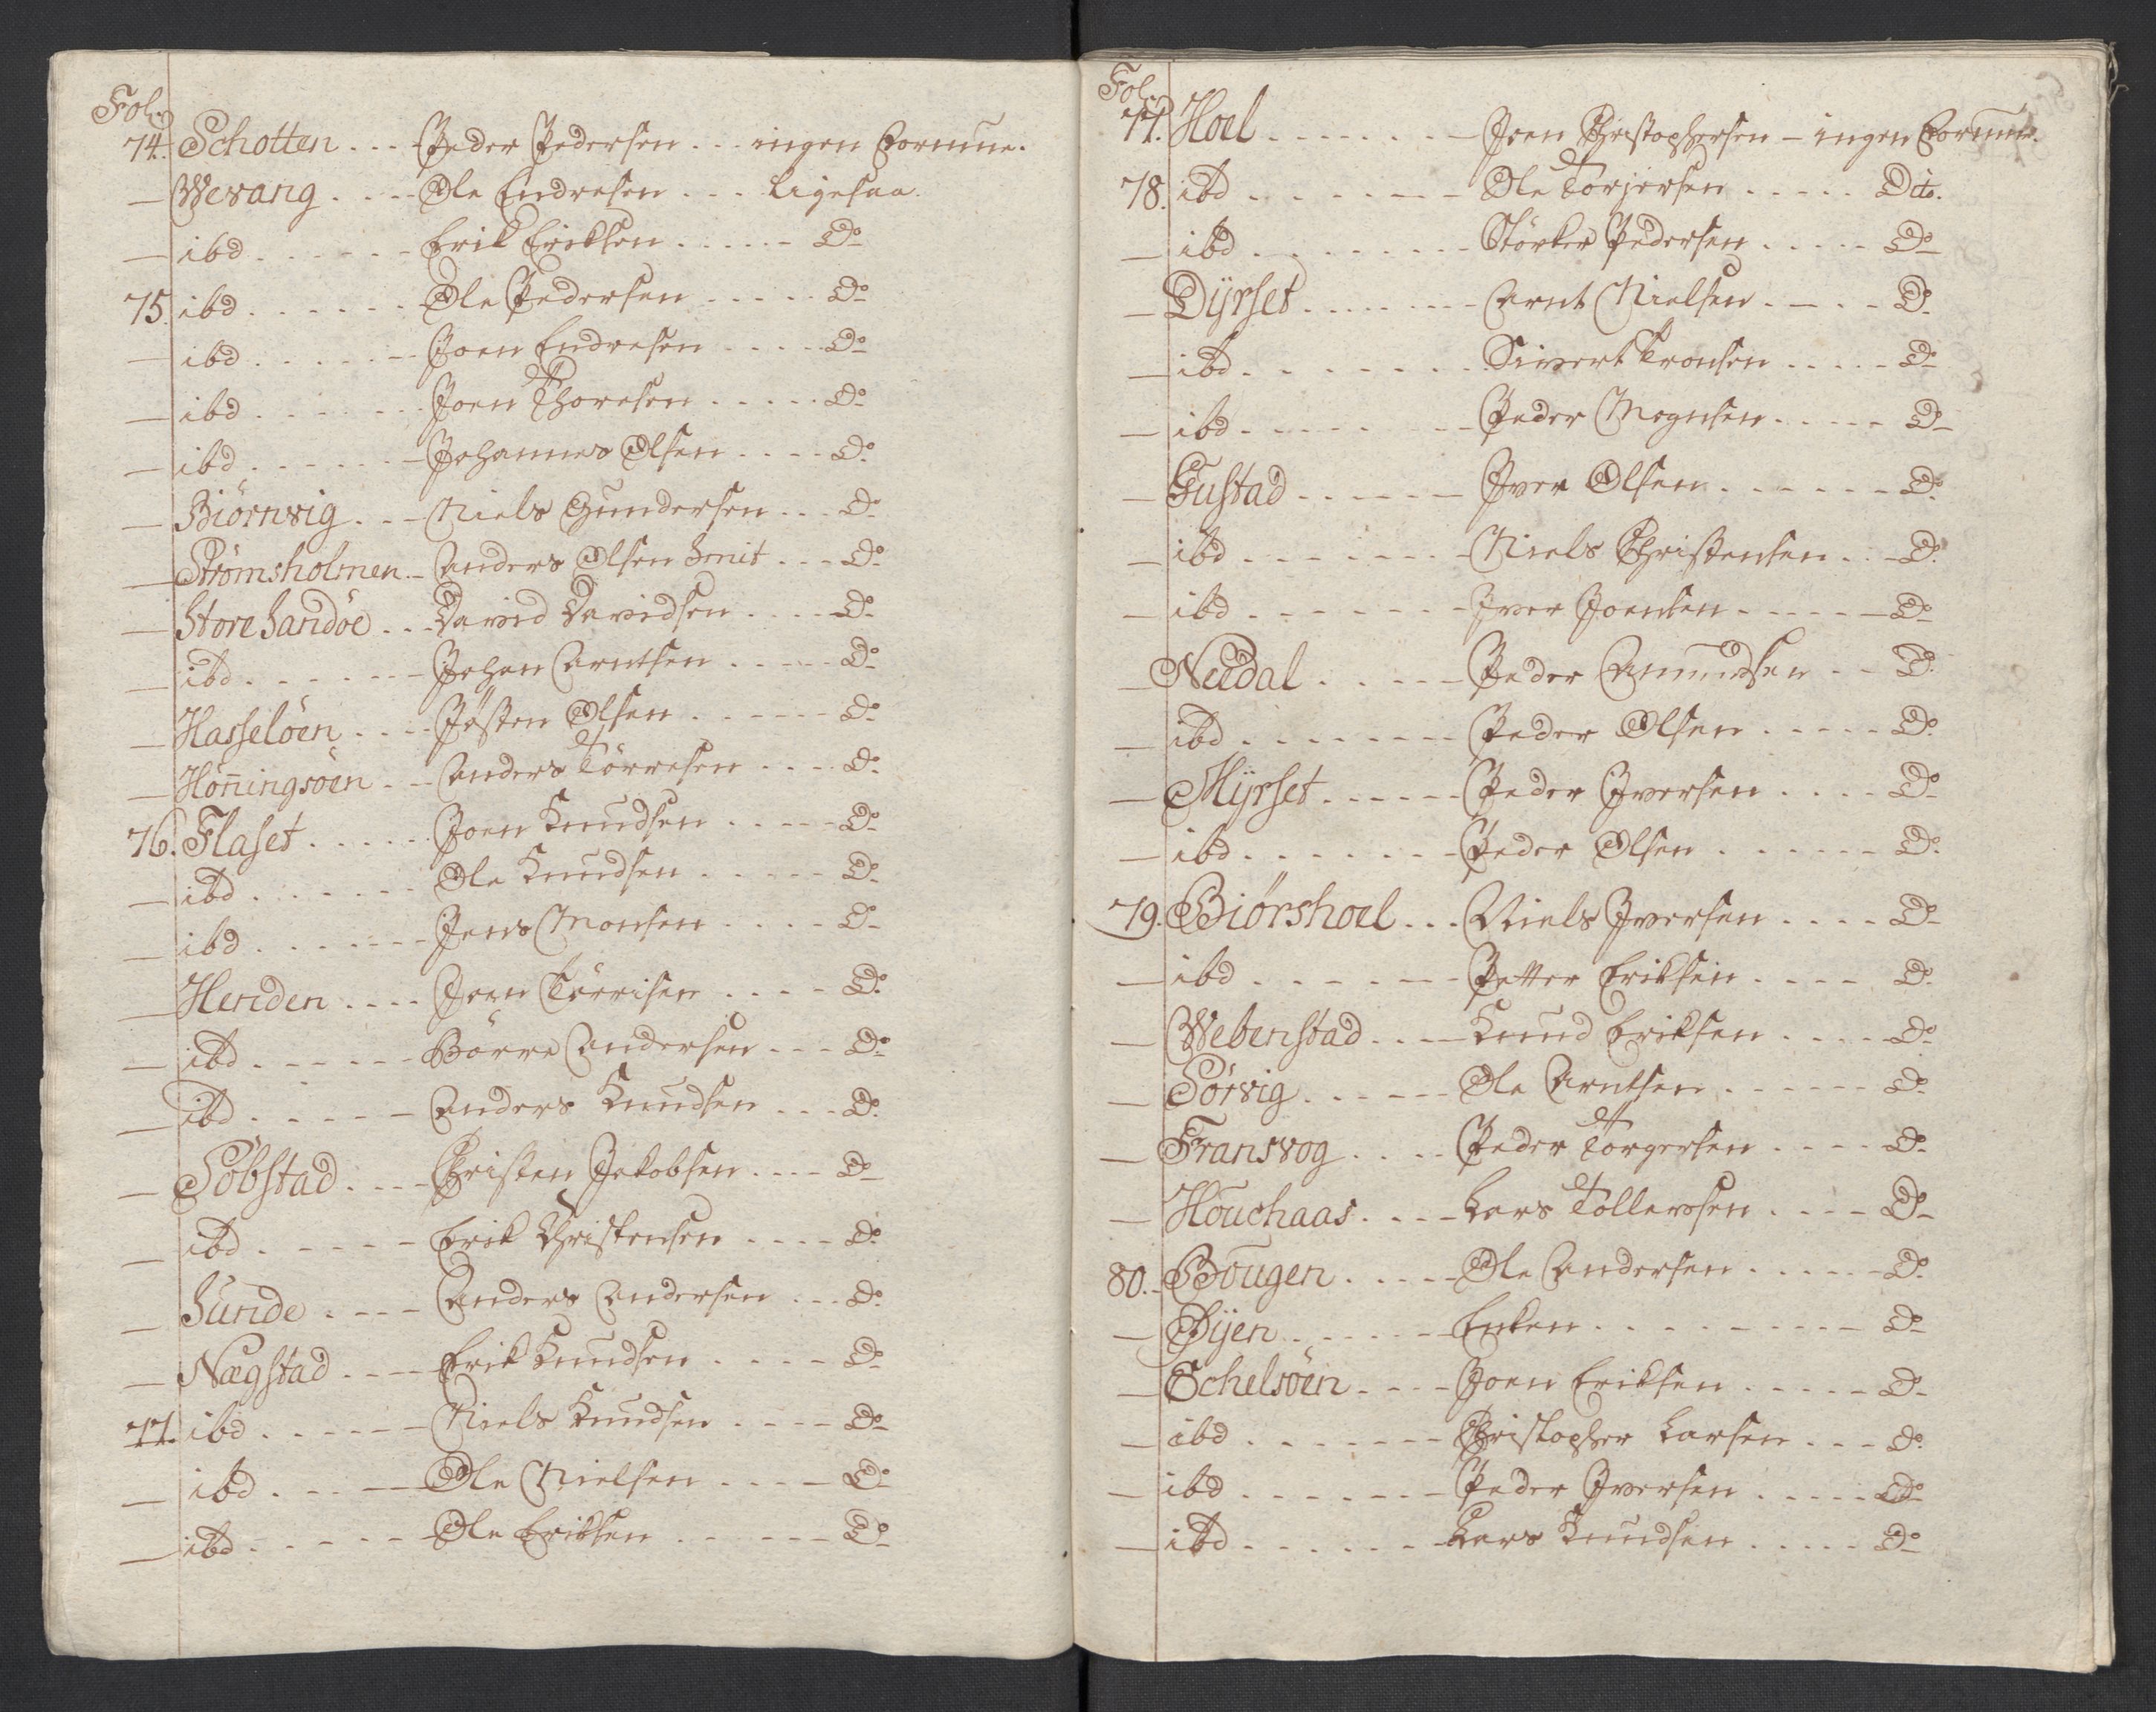 Fol.
74. Schotten . . . Peder Pedersen . . . ingen Formue.
— Wevang . . . . Ole Endresen . . . ligesaa.
— ibd . . . . . . Erik Eriksen . . . . . Do
75. ibd . . . . . . Ole Pedersen . . . . . Do
— ibd . . . . . . Joen Endresen . . . . . Do
— ibd . . . . . . Joen Thoresen . . . . . Do
— ibd . . . . . . Johannes Olsen . . . . Do
— Biörnvig . . . Niels Gundersen . . . Do
— Strömsholmen . . Anders Olsen Smit . . . Do
— Store Sandöe . . . David Davidsen . . . . Do
— ibd . . . . . . Johan Arntsen . . . . . Do
— Hasselöen . . . . Jösten Olsen . . . . . . Do
— Hönningsöen . . Anders Törresen . . . . Do
76. Flaset . . . . . Joen Knudsen . . . . . Do
— ibd . . . . . . Ole Knudsen . . . . . Do
— ibd . . . . . . Jens Monsen . . . . Do
— Henden . . . . Joen Törrisen . . . . Do
— ibd . . . . . . Börre Andersen . . . Do
— ibd . . . . . Anders Knudsen . . . Do
— Söbstad . . . . Christen Jakobsen . . . Do
— ibd . . . . . Erik Christensen . . . . Do
— Sunde . . . . Anders Andersen . . . Do
— Nægstad . . . . Erik Knudsen . . . . Do
77. ibd . . . . . . Niels Knudsen . . . . Do
— ibd . . . . . Ole Nielsen . . . . Do
— ibd . . . . . Ole Eriksen . . . . . . Do
Fol.
77. Hoel . . . . . . . Joen Christophersen — ingen Formue.
78. ibd . . . . . . . Ole Torjersen . . . . . Dito.
— ibd . . . . . . . Störker Pedersen . . . . . Do
— Dÿrset . . . . . . . Arnt Nielsen . . . . Do
— ibd . . . . . . . Sivert Tronsen . . . . . Do
— ibd . . . . . . . Peder Mognsen . . . . . Do
— Gustad . . . . . . Iver Olsen . . . . . . Do
— ibd . . . . . . . Niels Christensen . . . Do
— ibd . . . . . . . Iver Joensen . . . . . . Do
— Neudal . . . . . Peder Amundsen . . Do
— ibd . . . . . . . . Peder Olsen . . . . . Do
— Mÿrset . . . . . . Peder Iversen . . . . Do
— ibd . . . . . . . Peder Olsen . . . . . . Do
79. Biörshoel . . . Niels Iversen . . . . Do
— ibd . . . . . . . Petter Eriksen . . . . Do
— Webenstad . . . . Knud Eriksen . . . . Do
— Sörvig . . . . . . Ole Arntsen . . . . . . Do
— Fransvog . . . . Peder Torgersen . . . . Do
— Houchaas . . . . Lars Tollevsen . . . . Do
80. Bougen . . . . . Ole Andersen . . . . . Do
— Øÿen . . . . . . Enken . . . . . . . . . Do
— Schelsöen . . . . Joen Eriksen . . . . . Do
— ibd . . . . . . . Christopher Larsen . . . Do
— ibd . . . . . . . Peder Iversen . . . . . Do
— ibd . . . . . . . Lars Knudsen . . . . . Do